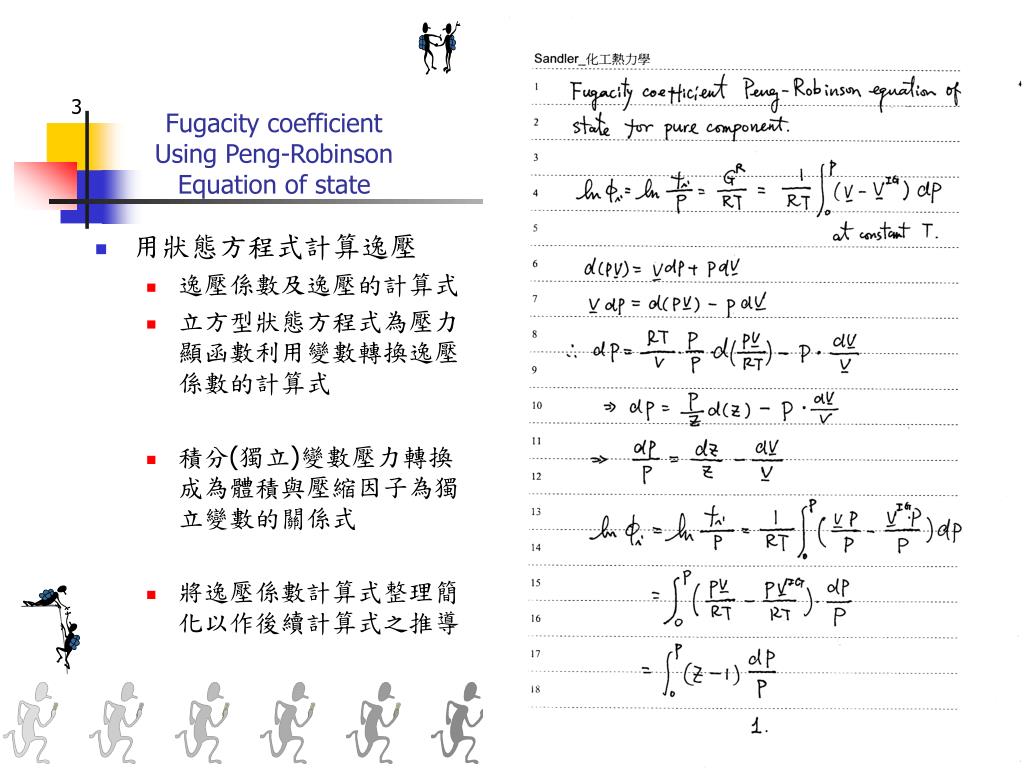 3
Fugacity coefficient
Using Peng-Robinson
Equation of state
用狀態方程式計算逸壓
逸壓係數及逸壓的計算式
立方型狀態方程式為壓力
顯函數利用變數轉換逸壓
係數的計算式
積分(獨立)變數壓力轉換
成為體積與壓縮因子為獨
立變數的關係式
將逸壓係數計算式整理簡
化以作後續計算式之推導
Sandler_化工熱力學
1 Fugacity coefficient Peng-Robinson equation of
2 state for pure component.
3
4 ln ϕi = ln fi/P = G^R/RT = 1/RT ∫_0^P (V̲ - V̲^IG) dP
5 at constant T.
6 d(PV̲) = V̲dP + PdV̲
7 V̲dP = d(PV̲) - PdV̲
8
9 ∴ dP = RT/V · P/P · d(PV̲/RT) - P · dV̲/V̲
10 ⇒ dP = P/Z d(Z) - P · dV̲/V̲
11
12 ⇒ dP/P = dZ/Z - dV̲/V̲
13
14 ln ϕi = ln fi/P = 1/RT ∫_0^P (V̲P/P - V̲^IG·P/P) dP
15
16 = ∫_0^P (PV̲/RT - PV̲^IG/RT) · dP/P
17
18 = ∫_0^P (Z-1) dP/P
1.